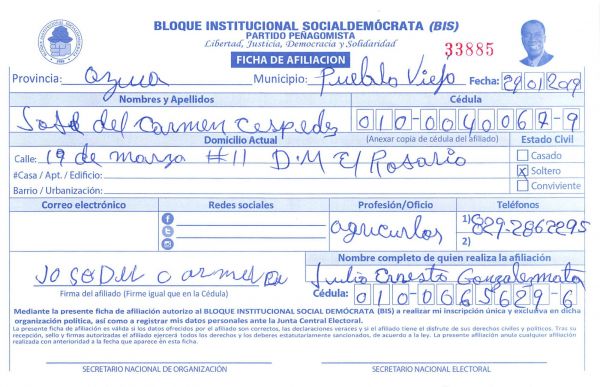 BLOQUE INSTITUCIONAL SOCIALDEMÓCRATA (BIS)
PARTIDO PEÑAGOMISTA
Libertad, Justicia, Democracia y Solidaridad
33885
FICHA DE AFILIACION
Provincia: Azua Municipio: Pueblo Viejo Fecha: 29/01/2019
Nombres y Apellidos Cédula
José del Carmen Cespedes 010-0040067-9
Domicilio Actual (Anexar copia de cédula del afiliado) Estado Civil
Calle: 19 de marzo #11 D.M El Rosario
#Casa / Apt. / Edificio:
Barrio / Urbanización:
Casado
X Soltero
Conviviente
Correo electrónico Redes sociales Profesión/Oficio Teléfonos
agricurlos 1) 829-2862295
2)
Nombre completo de quien realiza la afiliación
JOSEDEL Carmen Julio Ernesto Gonzalezmata
Firma del afiliado (Firme igual que en la Cédula) Cédula: 010-0065629-6
Mediante la presente ficha de afiliación autorizo al BLOQUE INSTITUCIONAL SOCIAL DEMÓCRATA (BIS) a realizar mi inscripción única y exclusiva en dicha
organización política, así como a registrar mis datos personales ante la Junta Central Electoral.
La presente ficha de afiliación es válida si los datos ofrecidos por el afiliado son correctos, las declaraciones veraces y si el afiliado tiene el disfrute de sus derechos civiles y políticos. Tras su
recepción, sello y firmas autorizadas el afiliado ejercerá todos los derechos y los deberes estatutariamente sancionados, de acuerdo a la ley. La presente afiliación anula cualquier afiliación
realizada con anterioridad a la fecha que aparece en esta ficha.
SECRETARIO NACIONAL DE ORGANIZACIÓN SECRETARIO NACIONAL ELECTORAL